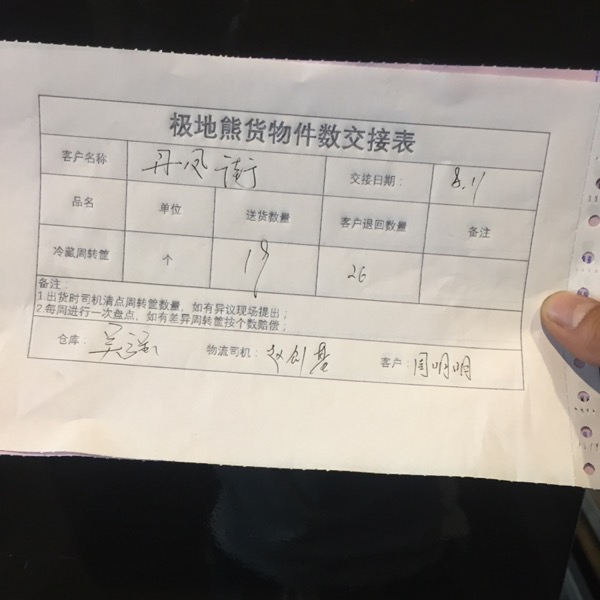 极地熊货物件数交接表
客户名称 丹凤街 交接日期： 8.11
品名 单位 送货数量 客户退回数量 备注
冷藏周转筐 个 19 26
备注：
1.出货时司机清点周转筐数量，如有异议现场提出；
2.每周进行一次盘点，如有差异周转筐按个数赔偿；
仓库： 物流司机： 赵创基 客户： 闫明明